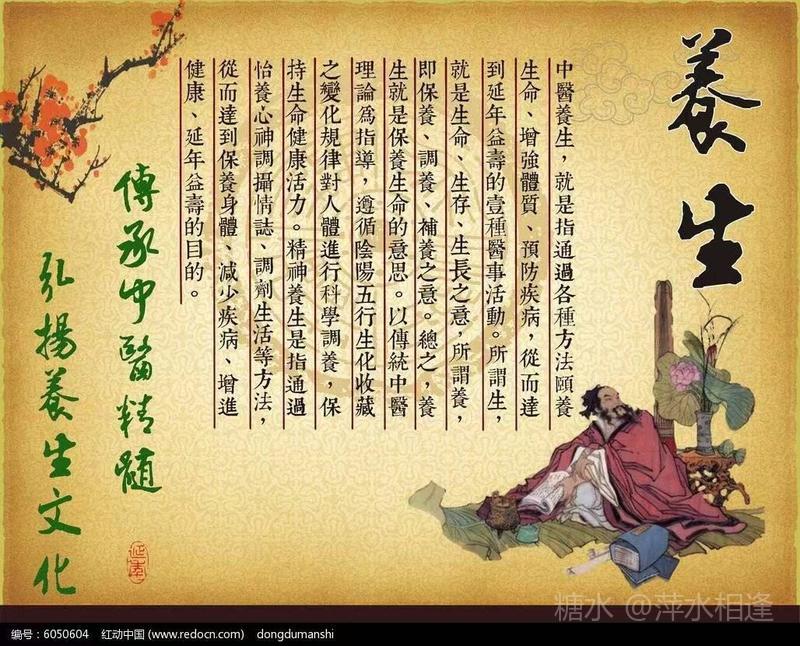 養生
中醫養生，就是指通過各種方法頤養
生命、增強體質、預防疾病，從而達
到延年益壽的壹種醫事活動。所謂生，
就是生命、生存、生長之意，所謂養，
即保養、調養、補養之意。總之，養
生就是保養生命的意思。以傳統中醫
理論爲指導，遵循陰陽五行生化收藏
之變化規律對人體進行科學調養，保
持生命健康活力。精神養生是指通過
怡養心神調攝情誌、調劑生活等方法，
從而達到保養身體、減少疾病、增進
健康、延年益壽的目的。
傳承中醫精髓
弘揚養生文化
糖水 @萍水相逢
编号：6050604 红动中国 (www.redocn.com) dongdumanshi